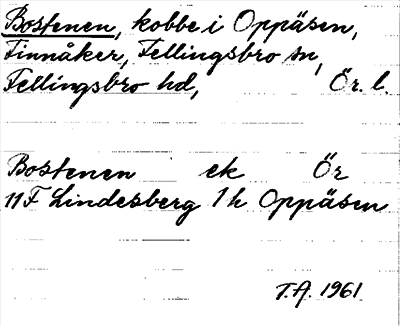 Bostenen, kobbe i Oppåsen,
Finnåker, Fellingsbro sn,
Fellingsbro hd, Ör. l.
Bostenen ek Ör
11F Lindesberg 1 h Oppåsen
T.A. 1961